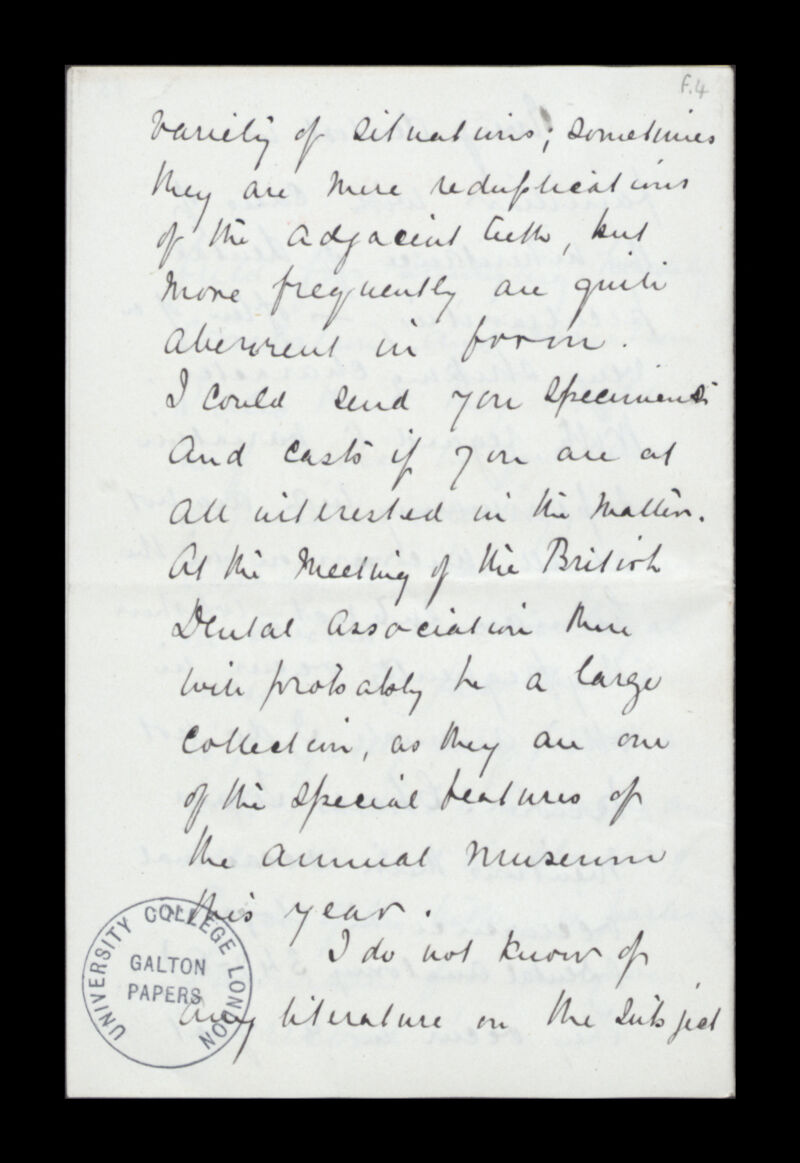 F.4
variety of situations; sometimes
they are mere reduplications
of the adjacent teeth, but
more frequently are quite
aberrent in form.
I could send you specimens
and casts if you are at
all interested in the matter.
At the meeting of the British
Dental Association there
will probably be a large
collection, as they are one
of the special features of
the annual museum
this year.
I do not know of
any literature on the subject
UNIVERSITY COLLEGE LONDON
GALTON
PAPERS